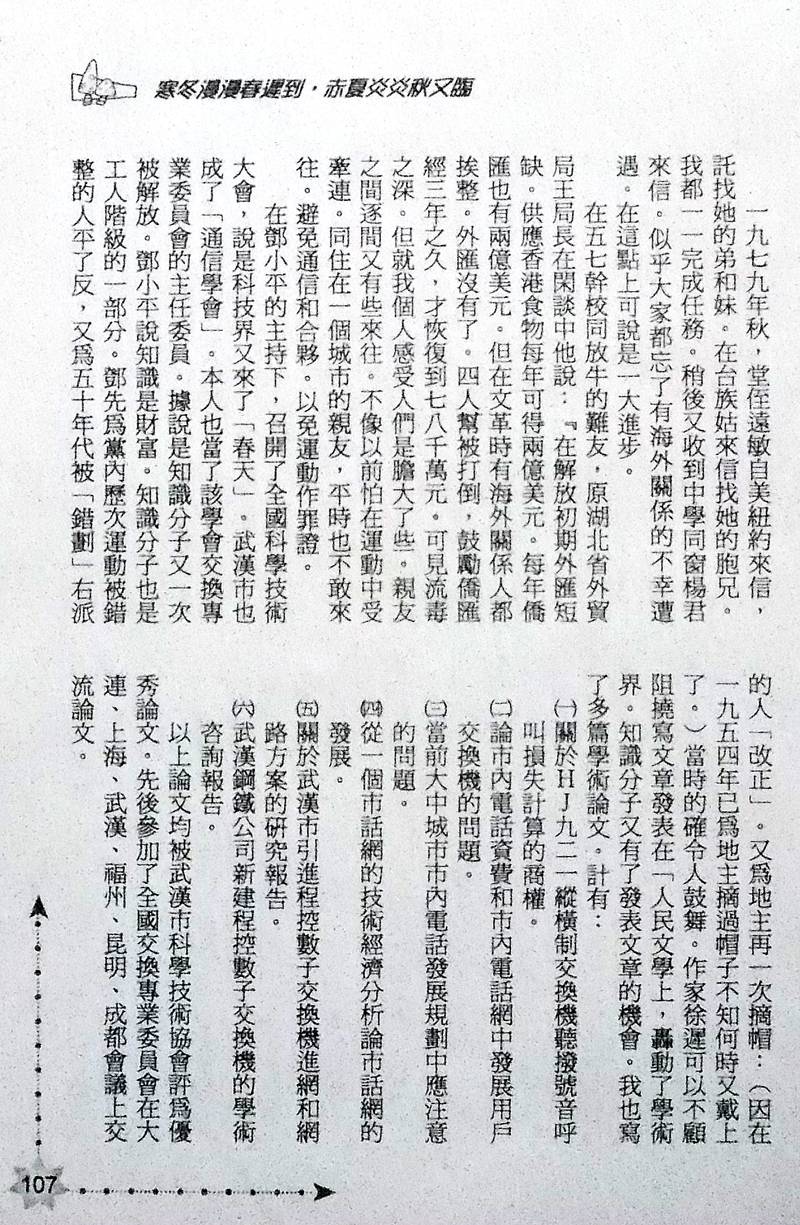 寒冬漫漫春遲到，赤夏炎炎秋又臨
一九七九年秋，堂侄遠敏自美紐約來信，
託找她的弟和妹。在台族姑來信找她的胞兄。
我都一一完成任務。稍後又收到中學同窗楊君
來信。似乎大家都忘了有海外關係的不幸遭
遇。在這點上可說是一大進步。
在五七幹校同放牛的難友，原湖北省外貿
局王局長在閑談中他說：『在解放初期外匯短
缺。供應香港食物每年可得兩億美元。每年僑
匯也有兩億美元。但在文革時有海外關係人都
挨整。外匯沒有了。四人幫被打倒，鼓勵僑匯
經三年之久，才恢復到七八千萬元。可見流毒
之深。但就我個人感受人們是膽大了些。親友
之間逐間又有些來往。不像以前怕在運動中受
牽連。同住在一個城市的親友，平時也不敢來
往。避免通信和合夥。以免運動作罪證。
在鄧小平的主持下，召開了全國科學技術
大會，說是科技界又來了「春天」。武漢市也
成了「通信學會」。本人也當了該學會交換專
業委員會的主任委員。據說是知識分子又一次
被解放。鄧小平說知識是財富。知識分子也是
工人階級的一部分。鄧先爲黨內歷次運動被錯
整的人平了反，又爲五十年代被「錯劃」右派
的人「改正」。又爲地主再一次摘帽：（因在
一九五四年已爲地主摘過帽子不知何時又戴上
了。）當時的確令人鼓舞。作家徐遲可以不顧
阻撓寫文章發表在「人民文學上，轟動了學術
界。知識分子又有了發表文章的機會。我也寫
了多篇學術論文。計有：
㈠關於HJ九二一縱橫制交換機聽撥號音呼
叫損失計算的商權。
㈡論市內電話資費和市內電話網中發展用戶
交換機的問題。
㈢當前大中城市市內電話發展規劃中應注意
的問題。
㈣從一個市話網的技術經濟分析論市話網的
發展。
㈤關於武漢市引進程控數子交換機進網和網
路方案的研究報告。
㈥武漢鋼鐵公司新建程控數子交換機的學術
咨詢報告。
以上論文均被武漢市科學技術協會評爲優
秀論文。先後參加了全國交換專業委員會在大
連、上海、武漢、福州、昆明、成都會議上交
流論文。
107